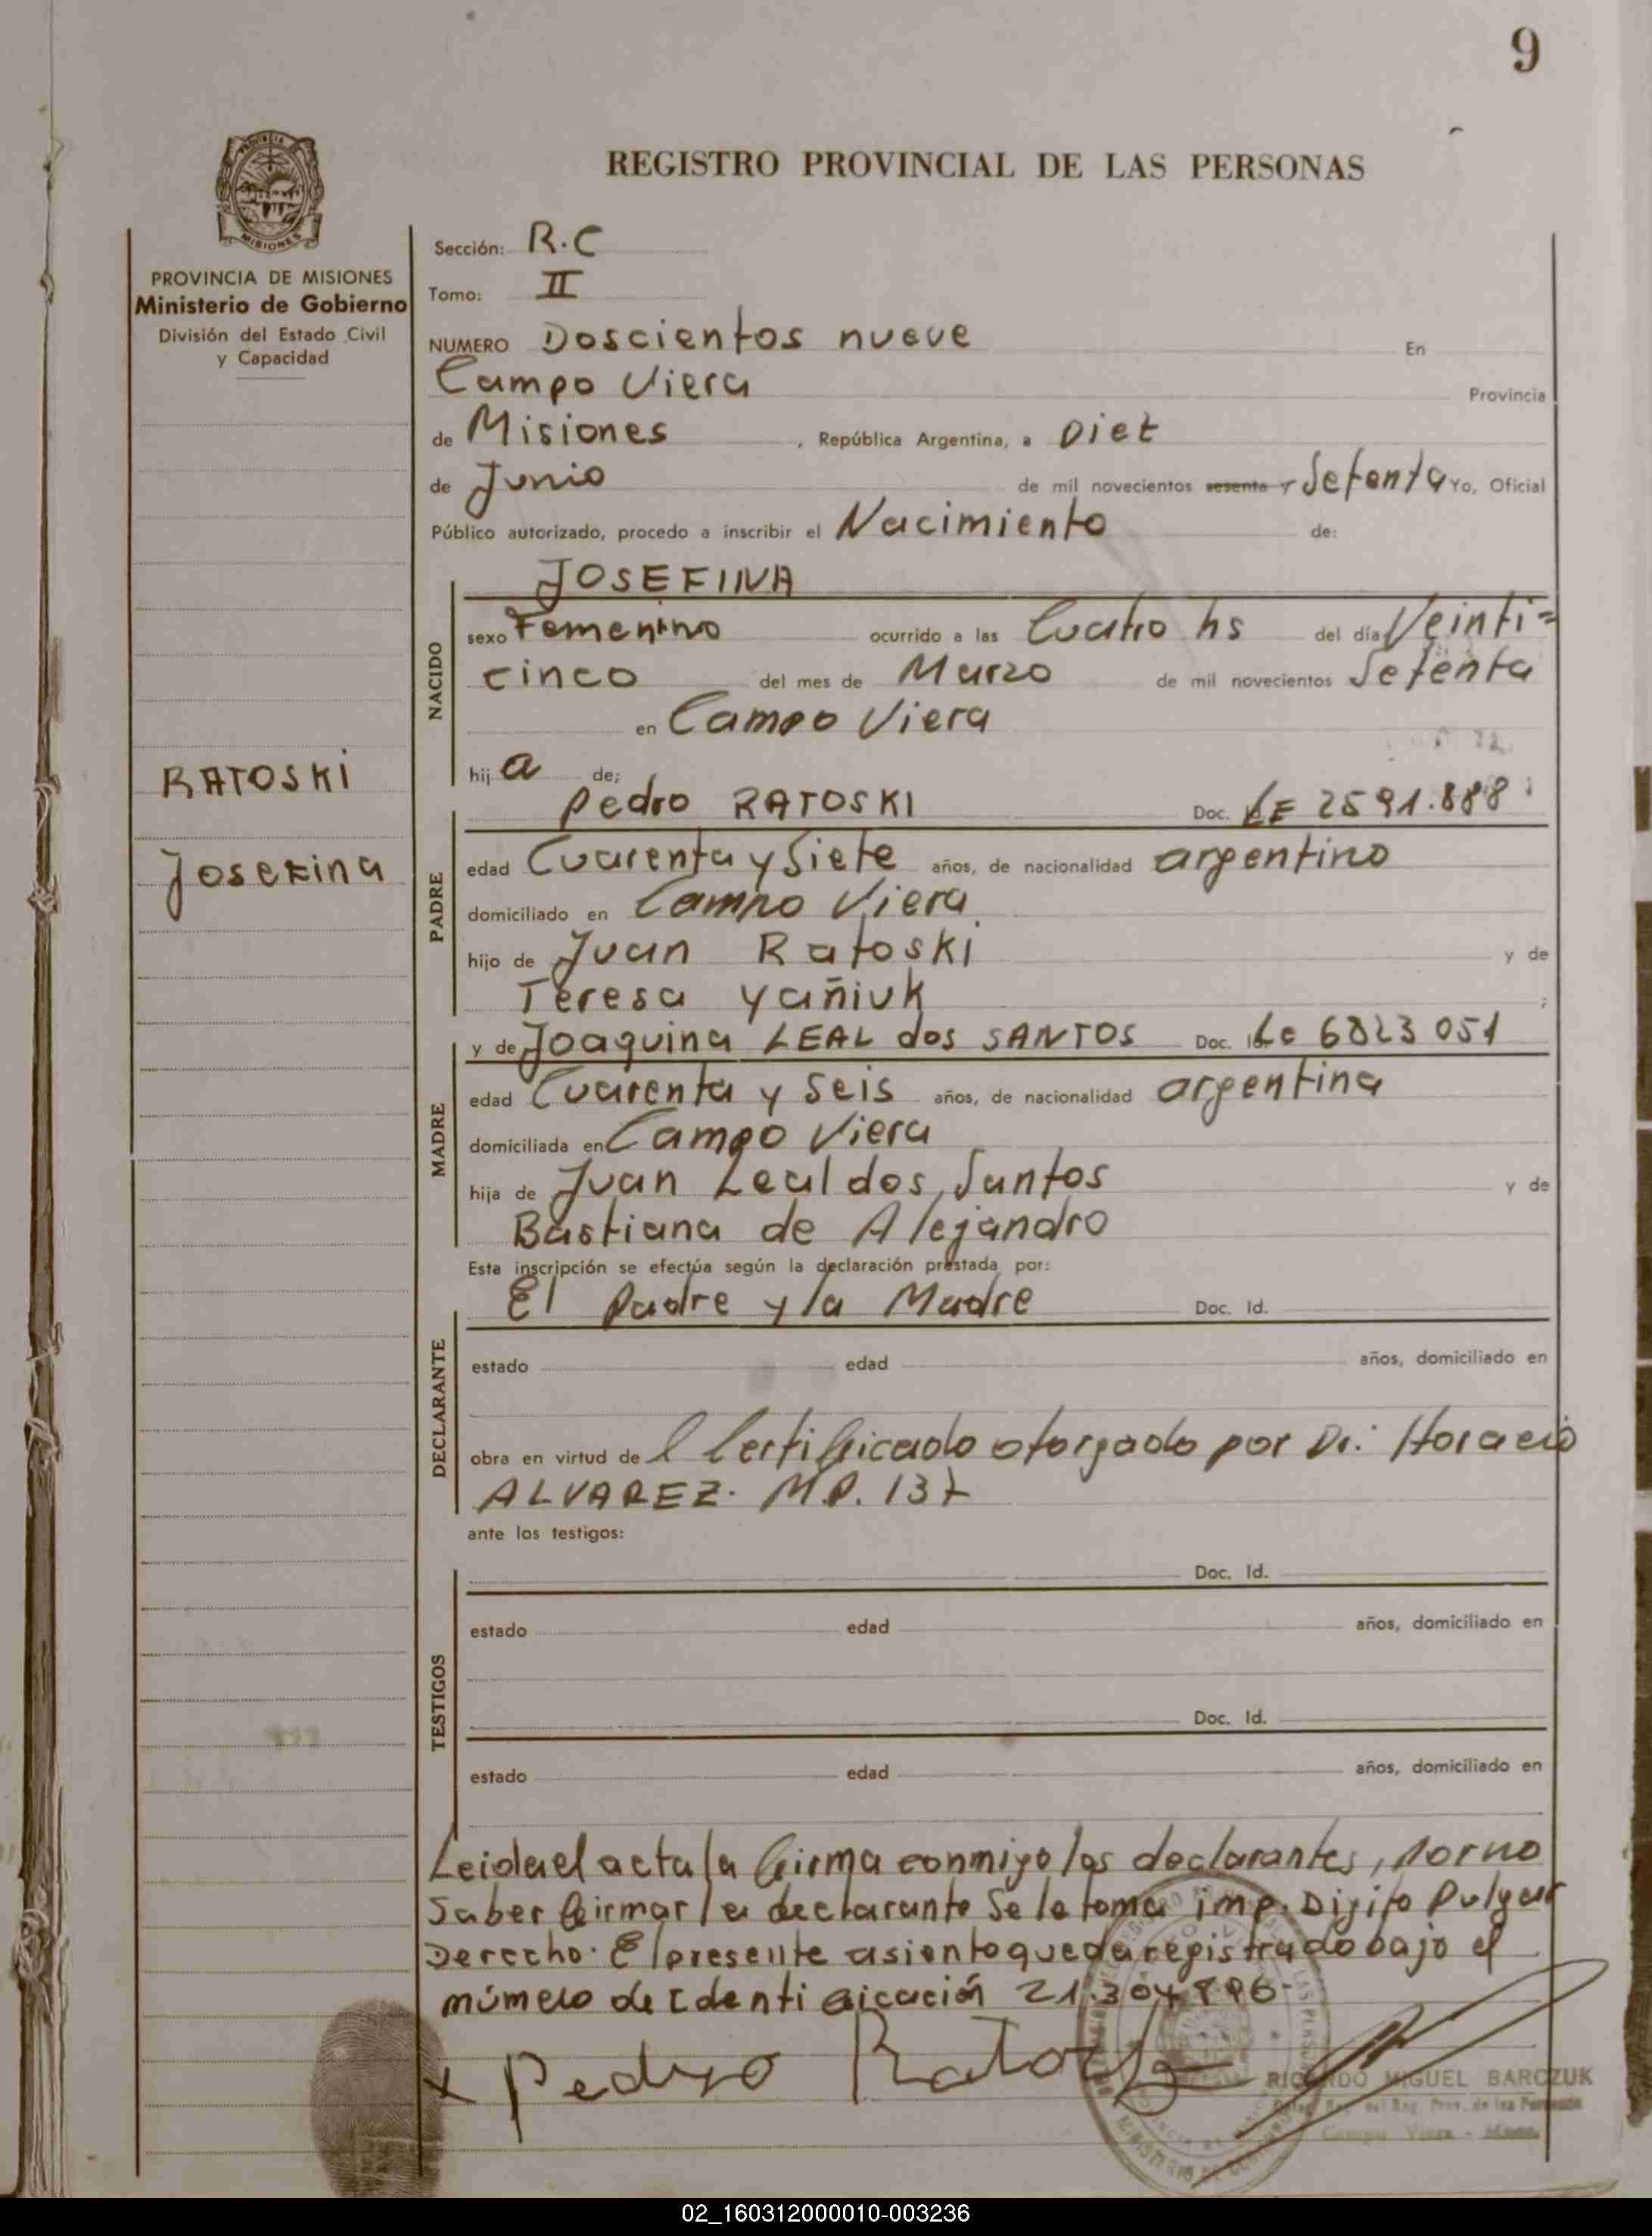 9
REGISTRO PROVINCIAL DE LAS PERSONAS
PROVINCIA DE MISIONES
Ministerio de Gobierno
División del Estado Civil
y Capacidad
RATOSKI
Josefina
Sección: R.C
Tomo: II
NUMERO Doscientos nueve En
Campo Viera Provincia
de Misiones, República Argentina, a Diez
de Junio de mil novecientos sesenta y Setenta Yo, Oficial
Público autorizado, procedo a inscribir el Nacimiento de:
NACIDO
JOSEFINA
sexo Femenino ocurrido a las Cuatro hs del día Veinti=
cinco del mes de Marzo de mil novecientos Setenta
en Campo Viera
hija de;
PADRE
Pedro RATOSKI Doc. LE 2591.888
edad Cuarenta y Siete años, de nacionalidad argentino
domiciliado en Campo Viera
hijo de Juan Ratoski y de
Teresa Yañiuk ;
MADRE
y de Joaquina LEAL dos SANTOS Doc. Lc 6823 051
edad Cuarenta y Seis años, de nacionalidad argentina
domiciliada en Campo Viera
hija de Juan Leal dos Santos y de
Bastiana de Alejandro
Esta inscripción se efectúa según la declaración prestada por:
DECLARANTE
El Padre y la Madre Doc. Id.
estado edad años, domiciliado en
obra en virtud de l Certificado otorgado por Dr: Horacio
ALVAREZ. M.P. 137
ante los testigos:
TESTIGOS
Doc. Id.
estado edad años, domiciliado en
Doc. Id.
estado edad años, domiciliado en
Leida el acta la firma conmigo los declarantes, por no
Saber firmar la declarante Se le toma imp. Digito Pulgar
Derecho. El presente asiento queda registrado bajo el
número de Identificación 21.304.896-
x Pedro Ratoski
RICARDO MIGUEL BARCZUK
Campo Viera - Mnes.
02_160312000010-003236